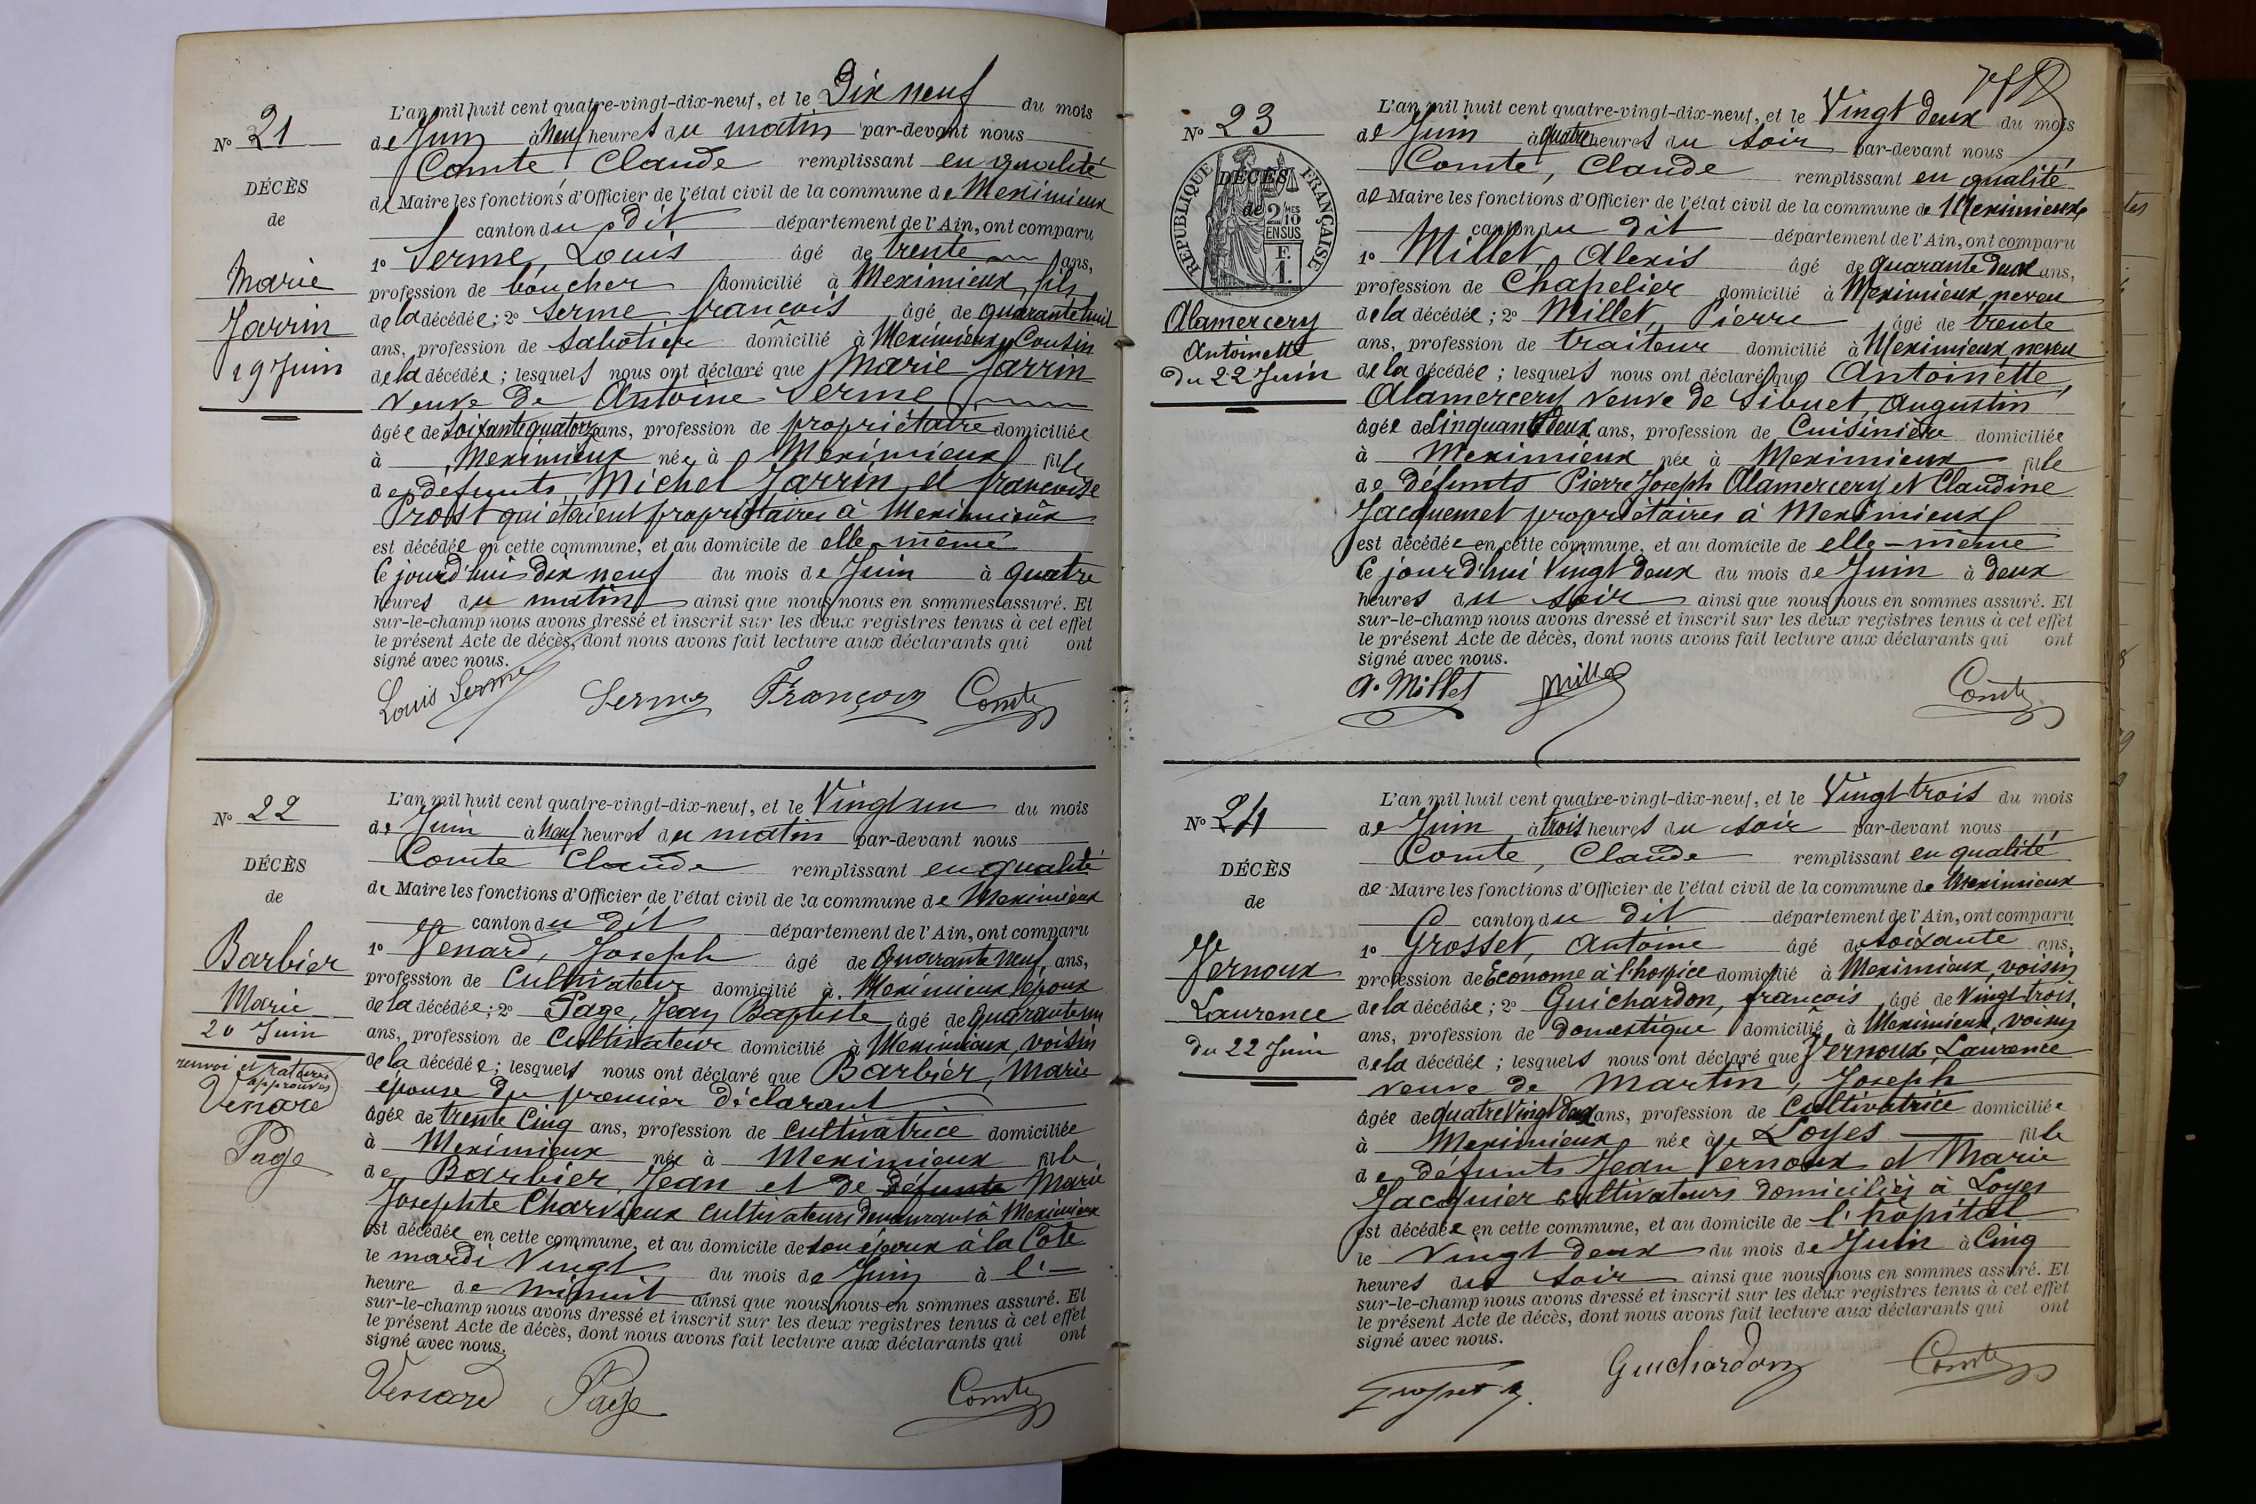 N° 21
DÉCÈS
de
Marie
Jarrin
19 Juin
L'an mil huit cent quatre-vingt-dix-neuf, et le Dix neuf du mois
de Juin à Neuf heures du matin par-devant nous
Comte Claude remplissant en qualité
de Maire les fonctions d'Officier de l'état civil de la commune de Meximieux
canton du dit département de l'Ain, ont comparu
1° Serme, Louis âgé de trente ans,
profession de boucher domicilié à Meximieux, fils
de la décédée; 2° Serme françois âgé de quarante huit
ans, profession de sabotier domicilié à Meximieux, Cousin
de la décédée; lesquels nous ont déclaré que Marie Jarrin
veuve de Antoine Serme
âgée de soixante quatorze ans, profession de propriétaire domiciliée
à Meximieux née à Meximieux fille
de défunts Michel Jarrin et françoise
Prost qui étaient propriétaires à Meximieux
est décédée en cette commune, et au domicile de elle-même
Ce jourd'hui dix neuf du mois de Juin à quatre
heures du matin ainsi que nous nous en sommes assuré. Et
sur-le-champ nous avons dressé et inscrit sur les deux registres tenus à cet effet
le présent Acte de décès, dont nous avons fait lecture aux déclarants qui ont
signé avec nous.
Louis Serme Serme François Comte
N° 22
DÉCÈS
de
Barbier
Marie
20 Juin
renvoi et ratures
approuvés
Venard
Page
L'an mil huit cent quatre-vingt-dix-neuf, et le Vingt un du mois
de Juin à Neuf heures du matin par-devant nous
Comte Claude remplissant en qualité
de Maire les fonctions d'Officier de l'état civil de la commune de Meximieux
canton du dit département de l'Ain, ont comparu
1° Venard, Joseph âgé de Quarante neuf ans,
profession de Cultivateur domicilié à Meximieux époux
de la décédée; 2° Page, Jean Baptiste âgé de quarante un
ans, profession de Cultivateur domicilié à Meximieux, voisin
de la décédée; lesquels nous ont déclaré que Barbier, Marie
épouse du premier déclarant
âgée de trente Cinq ans, profession de cultivatrice domiciliée
à Meximieux née à Meximieux fille
de Barbier Jean et de défunte Marie
Josephte Charvieux cultivateurs demeurant à Meximieux
est décédée en cette commune, et au domicile de son époux à la Côte
le mardi Vingt du mois de Juin à l'
heure de minuit ainsi que nous nous en sommes assuré. Et
sur-le-champ nous avons dressé et inscrit sur les deux registres tenus à cet effet
le présent Acte de décès, dont nous avons fait lecture aux déclarants qui ont
signé avec nous.
Venard Page Comte
N° 23
RÉPUBLIQUE FRANÇAISE
DÉCÈS
de
2 MES
10
EN SUS
F.
1.
Alamercery
Antoinette
du 22 Juin
L'an mil huit cent quatre-vingt-dix-neuf, et le Vingt deux du mois
de Juin à quatre heures du soir par-devant nous
Comte, Claude remplissant en qualité
de Maire les fonctions d'Officier de l'état civil de la commune de Meximieux
canton du dit département de l'Ain, ont comparu
1° Millet, Alexis âgé de quarante deux ans,
profession de Chapelier domicilié à Meximieux, neveu
de la décédée; 2° Millet, Pierre âgé de trente
ans, profession de traiteur domicilié à Meximieux, neveu
de la décédée; lesquels nous ont déclaré que Antoinette
Alamercery veuve de Sibuet, Augustin
âgée de Cinquante deux ans, profession de Cuisinière domiciliée
à Meximieux née à Meximieux fille
de défunts Pierre Joseph Alamercery et Claudine
Jacquemet propriétaires à Meximieux
est décédée en cette commune, et au domicile de elle-même
Ce jourd'hui Vingt deux du mois de Juin à deux
heures du soir ainsi que nous nous en sommes assuré. Et
sur-le-champ nous avons dressé et inscrit sur les deux registres tenus à cet effet
le présent Acte de décès, dont nous avons fait lecture aux déclarants qui ont
signé avec nous.
A. Millet Millet Comte
N° 24
DÉCÈS
de
Vernoux
Laurence
du 22 Juin
L'an mil huit cent quatre-vingt-dix-neuf, et le Vingt trois du mois
de Juin à trois heures du soir par-devant nous
Comte, Claude remplissant en qualité
de Maire les fonctions d'Officier de l'état civil de la commune de Meximieux
canton du dit département de l'Ain, ont comparu
1° Grosset, Antoine âgé de soixante ans,
profession de Econome à l'hospice domicilié à Meximieux, voisin
de la décédée; 2° Guichardon, françois âgé de Vingt trois
ans, profession de domestique domicilié à Meximieux, voisin
de la décédée; lesquels nous ont déclaré que Vernoux, Laurence
veuve de Martin, Joseph
âgée de quatre Vingt deux ans, profession de Cultivatrice domiciliée
à Meximieux née à Loyes fille
de défunts Jean Vernoux et Marie
Jacquier cultivateurs domiciliés à Loyes
est décédée en cette commune, et au domicile de l'hôpital
le Vingt deux du mois de Juin à Cinq
heures du soir ainsi que nous nous en sommes assuré. Et
sur-le-champ nous avons dressé et inscrit sur les deux registres tenus à cet effet
le présent Acte de décès, dont nous avons fait lecture aux déclarants qui ont
signé avec nous.
Grosset A. Guichardon Comte